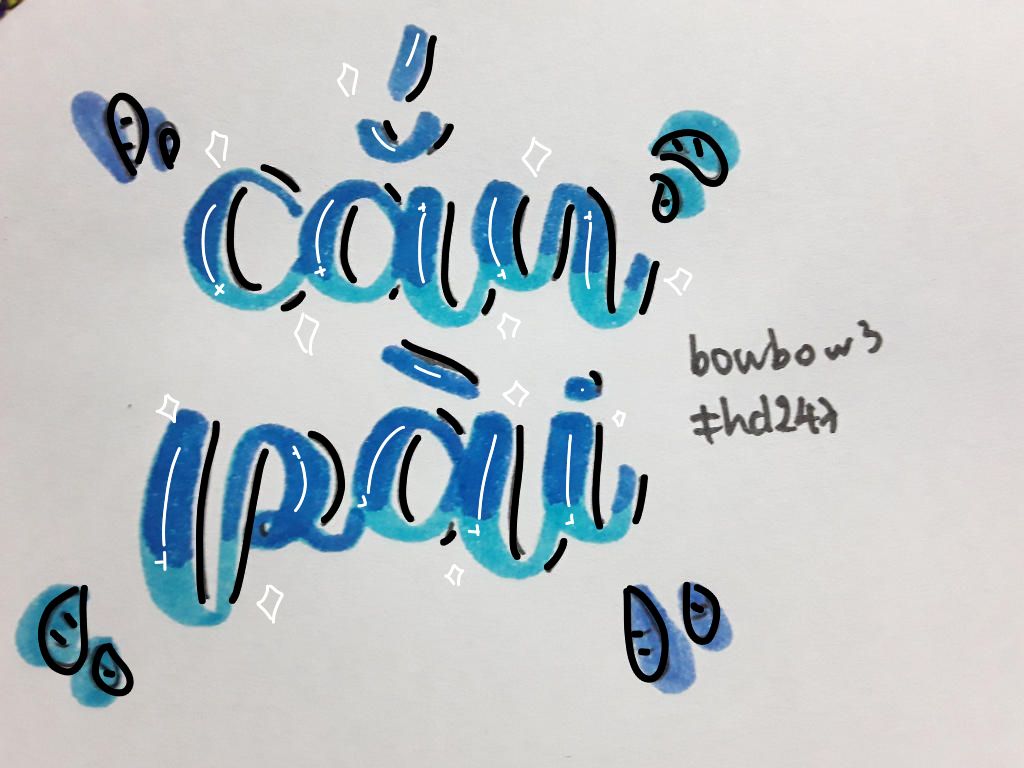 cắu
pài
bowbow3
#hd247